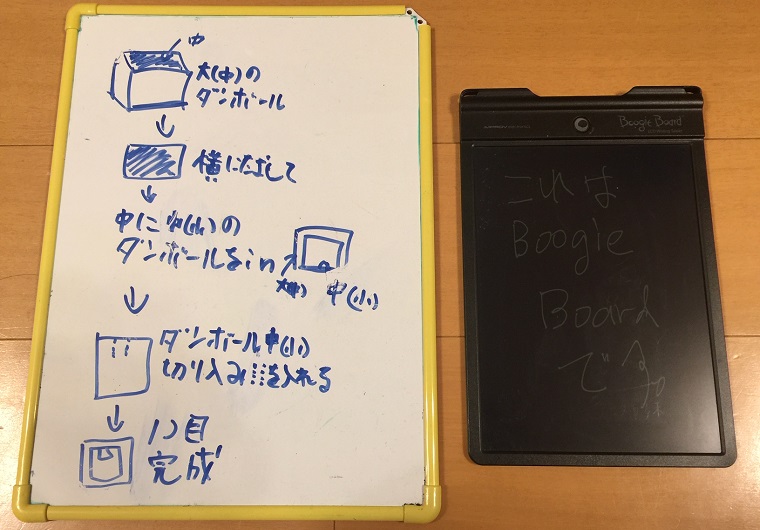 中
大(中)の
ダンボール
横にたおして
中に中(小)の
ダンボールをin
大(中) 中(小)
ダンボール中(小)
切り込みを入れる
1つ目
完成
Boogie Board
これは
Boogie
Board
です。